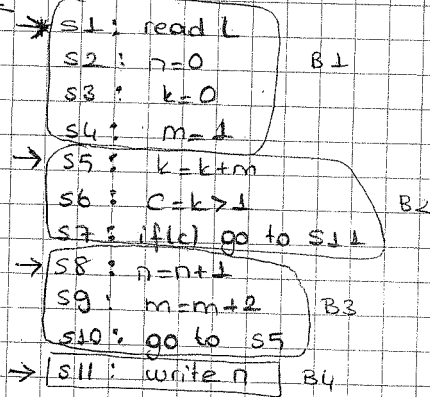 s1: read L
s2: n=0 B1
s3: k=0
s4: m=1
s5: k=k+m
s6: c=k>1 B2
s7: if(c) go to s11
s8: n=n+1
s9: m=m+2 B3
s10: go to s5
s11: write n B4